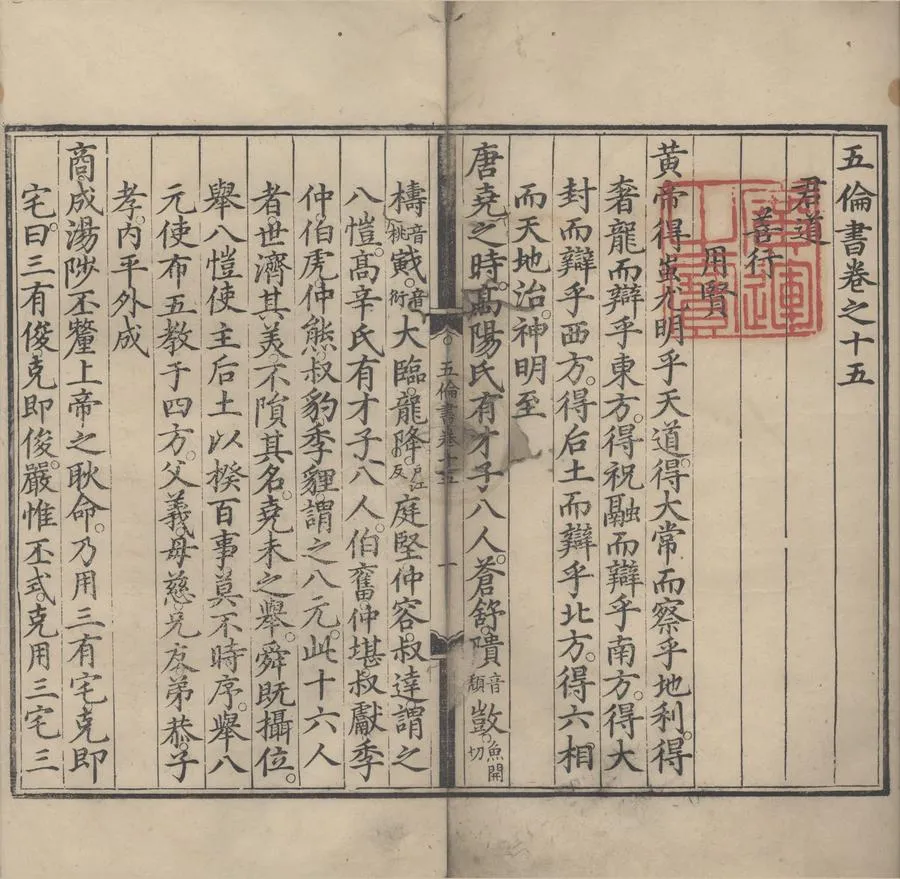 五倫書卷之十五
君道
善行
用賢
黃帝得蚩尤明乎天道。得大常而察乎地利。得
奢龍而辯乎東方。得祝融而辯乎南方。得大
封而辯乎西方。得后土而辯乎北方。得六相
而天地治。神明至
唐堯之時。高陽氏有才子八人。蒼舒。隤音頹敳。魚開切
檮音桃戭。音衍大臨。龍降。戶江反庭堅。仲容。叔達。謂之
八愷。高辛氏有才子八人。伯奮。仲堪。叔獻。季
仲。伯虎。仲熊。叔豹。季貍。謂之八元。此十六人
者。世濟其美。不隕其名。堯未之舉。舜既攝位。
舉八愷。使主后土。以揆百事。莫不時序。舉八
元。使布五教于四方。父義。母慈。兄友。弟恭。子
孝。內平外成
商成湯陟丕釐上帝之耿命。乃用三有宅。克即
宅。曰三有俊。克即俊。嚴惟丕式。克用三宅三
五倫書卷十五
一